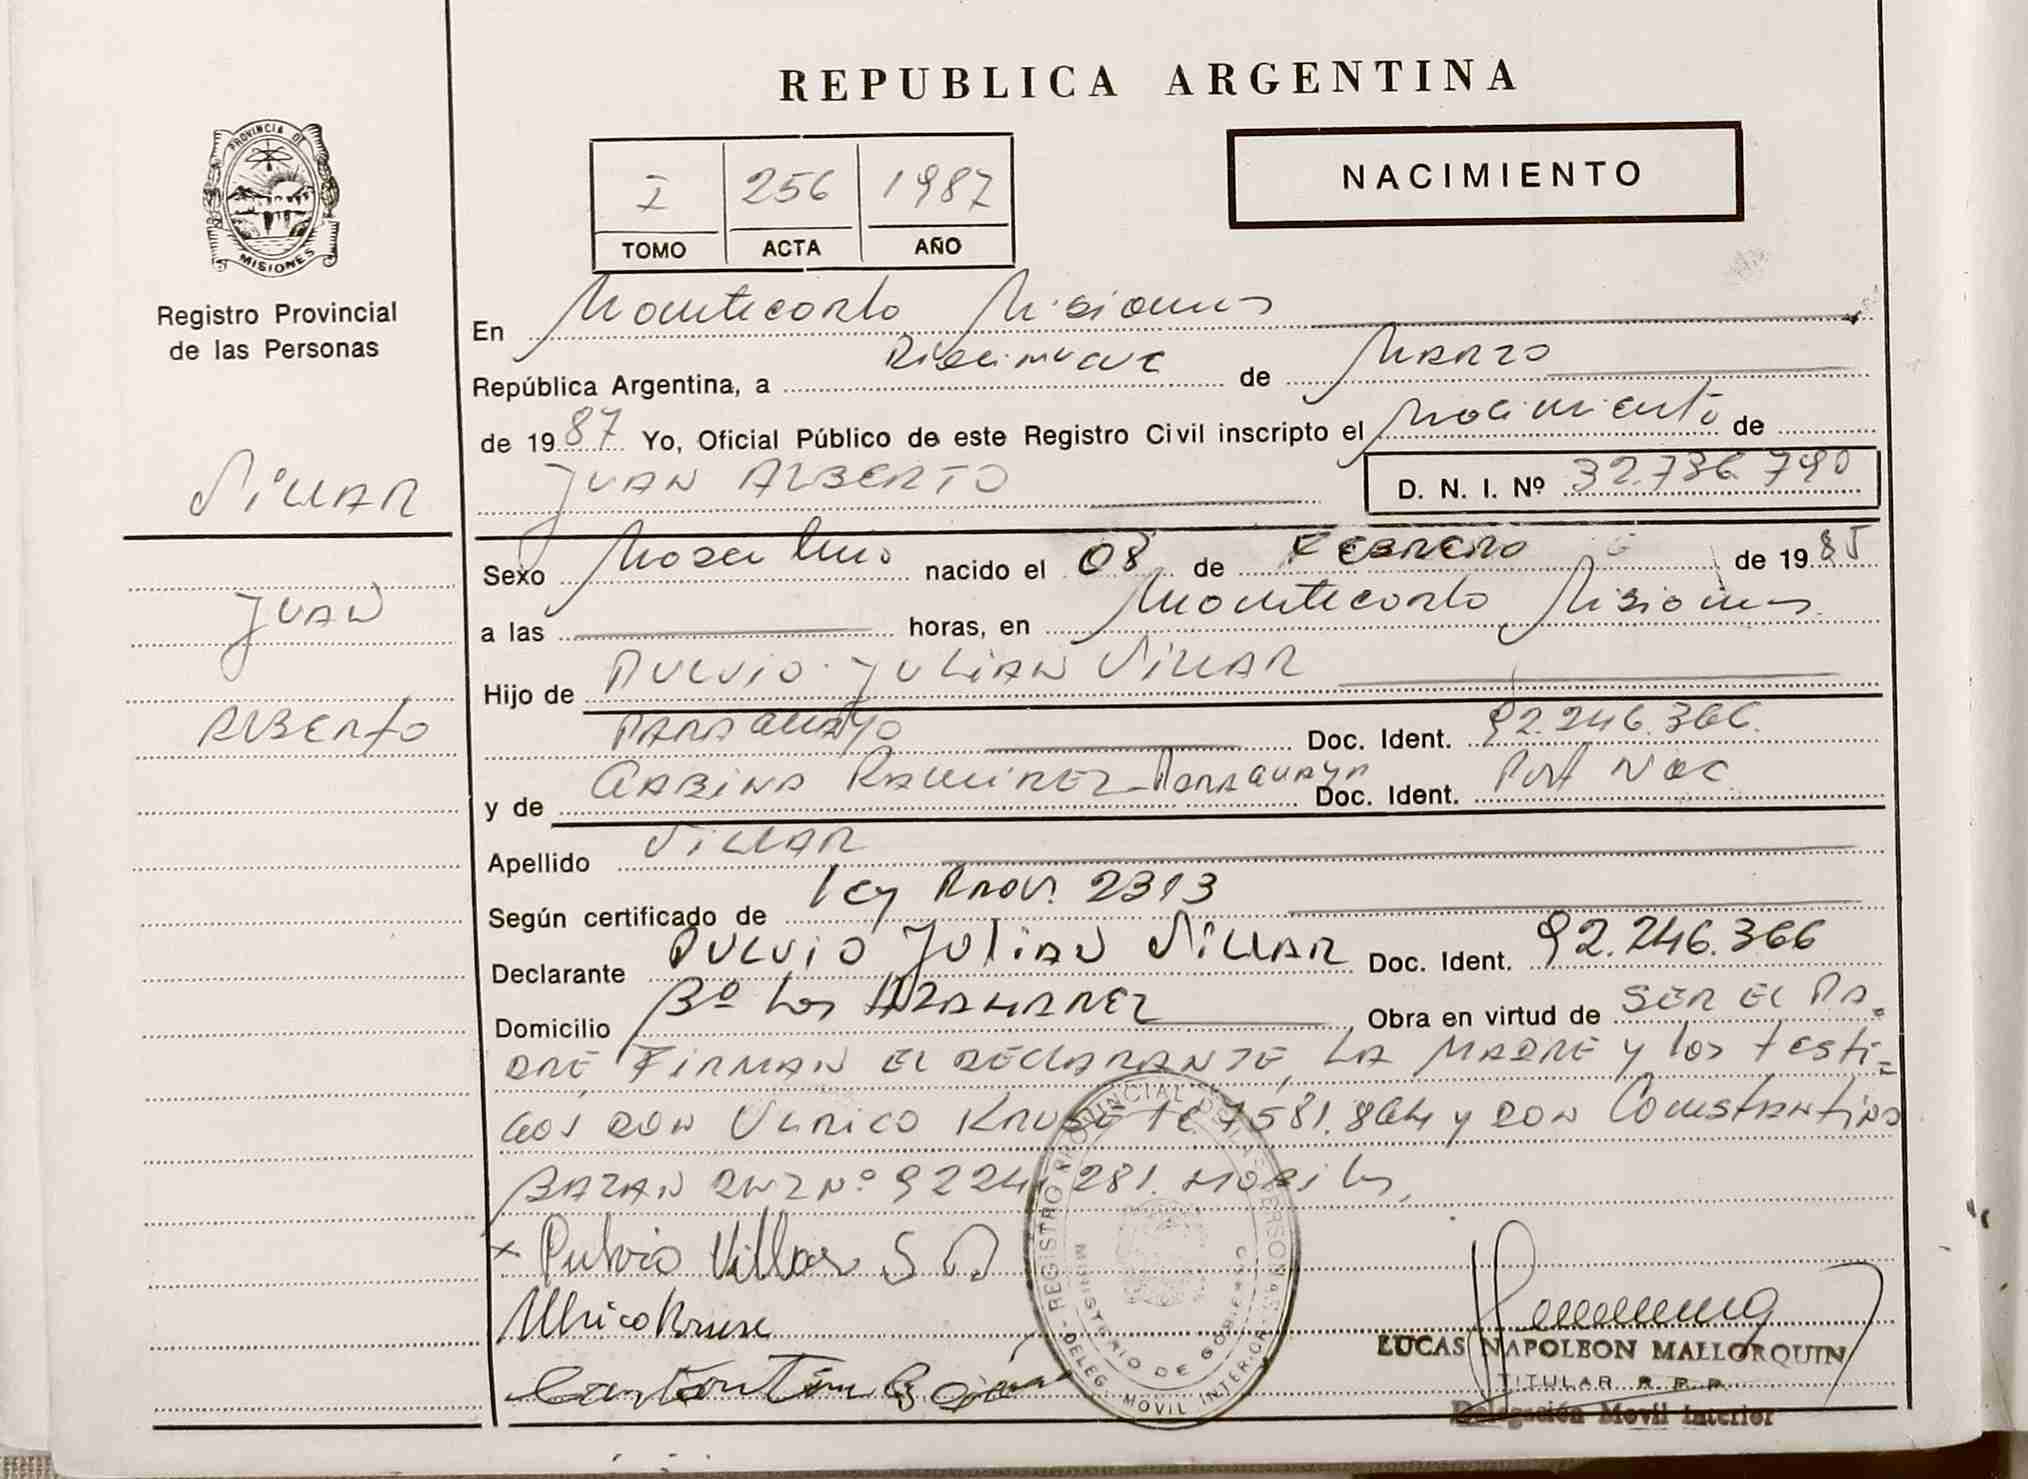 REPUBLICA ARGENTINA
PROVINCIA DE MISIONES
Registro Provincial
de las Personas
I 256 1987
TOMO ACTA AÑO
NACIMIENTO
En Montecarlo Misiones
República Argentina, a Diecinueve de Marzo
de 1987 Yo, Oficial Público de este Registro Civil inscripto el Nacimiento de
JUAN ALBERTO D. N. I. Nº 32.736.790
VILLAR
JUAN
ALBERTO
Sexo Masculino nacido el 08 de FEBRERO de 1985
a las horas, en Montecarlo Misiones
Hijo de PULVIO JULIAN VILLAR
PARAGUAYO Doc. Ident. 92.246.366.
y de GABINA RAMIREZ - PARAGUAYA Doc. Ident. Part Nac
Apellido VILLAR
Según certificado de ley Prov. 2313
Declarante PULVIO JULIAN VILLAR Doc. Ident. 92.246.366
Domicilio Bº Los AZAHARES Obra en virtud de SER EL PA-
DRE, FIRMAN EL DECLARANTE, LA MADRE y los testi-
GOS DON ULRICO KRUSE 7581.864 y DON Constantino
BAZAN DNI Nº 9224 281.
x Pulvio Villar S D
Ulrico Kruse
REGISTRO PROVINCIAL DE LAS PERSONAS
MINISTERIO DE GOBIERNO
DELEG. MOVIL INTERIOR
LUCAS NAPOLEON MALLORQUIN
TITULAR R. P. P.
Delegación Movil Interior